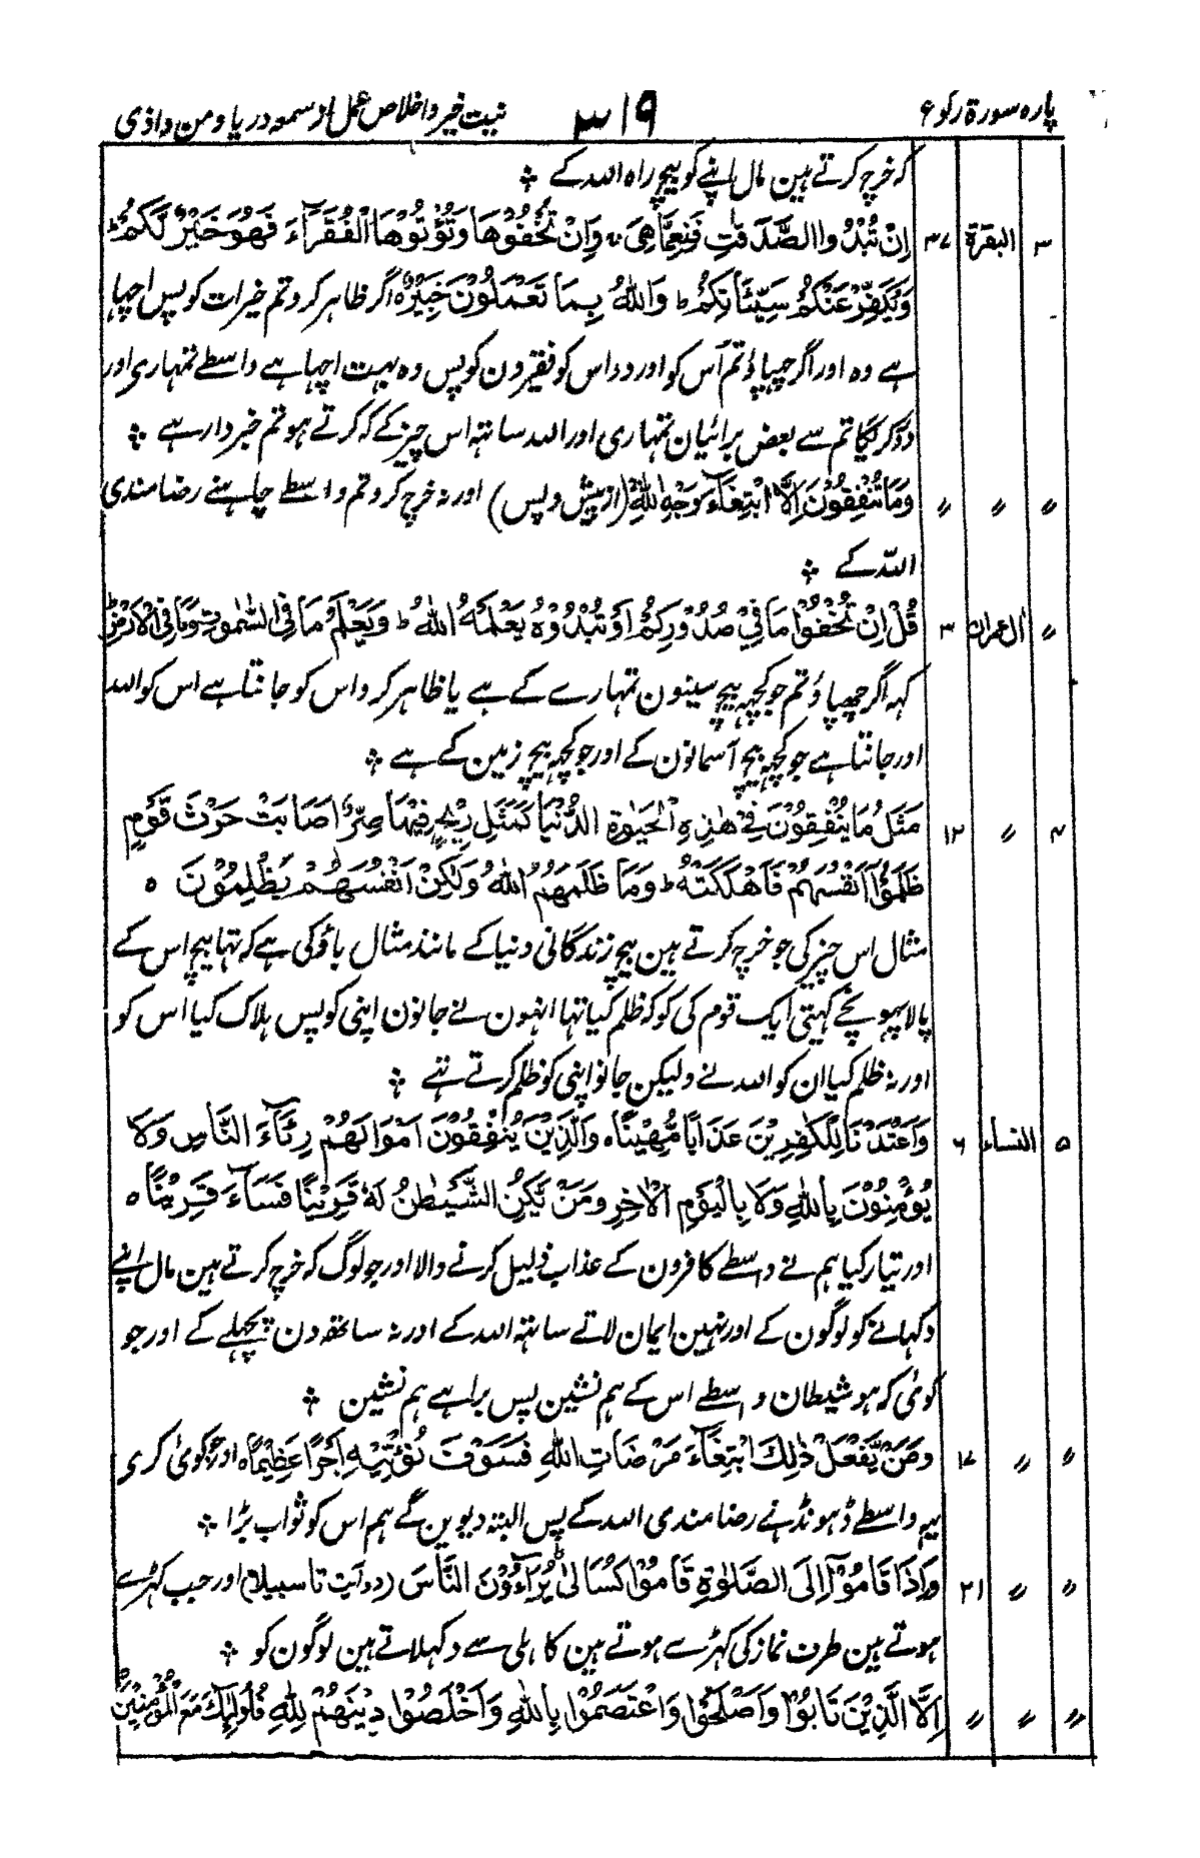 پارہ سورۃ رکوع ۳۱۹ نیت خیر و اخلاص عمل از سمعہ و ریا و من و اذی
کہ خرچ کرتے ہین مال اپنے کو بیچ راہ اللہ کے ؞
۳ البقرۃ ۳۷ اِنْ تُبْدُوا الصَّدَقٰتِ فَنِعِمَّا هِیَ ۚ وَاِنْ تُخْفُوْهَا وَتُؤْتُوْهَا الْفُقَرَآءَ فَهُوَ خَیْرٌ لَّكُمْ ؕ
وَیُكَفِّرُ عَنْكُمْ سَیِّئَاتِكُمْ ؕ وَاللّٰهُ بِمَا تَعْمَلُوْنَ خَبِیْرٌ ۝ اگر ظاہر کرو تم خیرات کو پس اچہا
ہے وہ اور اگر چہپاؤ تم اس کو اور دو اس کو فقیرون کو پس وہ بہت اچہا ہے واسطے تمہاری اور
دور کریگا تم سے بعض برائیان تمہاری اور اللہ ساتہہ اس چیز کے کہ کرتے ہو تم خبردار ہے ؞
〃 〃 〃 وَمَا تُنْفِقُوْنَ اِلَّا ابْتِغَآءَ وَجْهِ اللّٰهِ (از پیش و پس) اور نہ خرچ کرو تم واسطے چاہنے رضامندی
اللّٰہ کے ؞
〃 اٰل عمران ۳ قُلْ اِنْ تُخْفُوْا مَا فِیْ صُدُوْرِكُمْ اَوْ تُبْدُوْهُ یَعْلَمْهُ اللّٰهُ ؕ وَیَعْلَمُ مَا فِی السَّمٰوٰتِ وَمَا فِی الْاَرْضِ ؕ
کہہ اگر چہپاؤ تم جو کچہہ بیچ سینون تمہارے کے ہے یا ظاہر کرو اس کو جانتا ہے اس کو اللہ
اور جانتا ہے جو کچہہ بیچ آسمانون کے اور جو کچہہ بیچ زمین کے ہے ؞
۴ 〃 ۱۲ مَثَلُ مَا یُنْفِقُوْنَ فِیْ هٰذِهِ الْحَیٰوةِ الدُّنْیَا كَمَثَلِ رِیْحٍ فِیْهَا صِرٌّ اَصَابَتْ حَرْثَ قَوْمٍ
ظَلَمُوْۤا اَنْفُسَهُمْ فَاَهْلَكَتْهُ ؕ وَمَا ظَلَمَهُمُ اللّٰهُ وَلٰكِنْ اَنْفُسَهُمْ یَظْلِمُوْنَ ۝
مثال اس چیز کی جو خرچ کرتے ہین بیچ زندگانی دنیا کے مانند مثال باؤ کی ہے کہ تہا بیچ اس کے
پالا پہونچے کہیتی ایک قوم کی کو کہ ظلم کیا تہا انہون نے جانون اپنی کو پس ہلاک کیا اس کو
اور نہ ظلم کیا ان کو اللہ نے ولیکن جانو اپنی کو ظلم کرتے تہے ؞
۵ النساء ۶ وَاَعْتَدْنَا لِلْكٰفِرِیْنَ عَذَابًا مُّهِیْنًا ۝ وَالَّذِیْنَ یُنْفِقُوْنَ اَمْوَالَهُمْ رِئَآءَ النَّاسِ وَلَا
یُؤْمِنُوْنَ بِاللّٰهِ وَلَا بِالْیَوْمِ الْاٰخِرِ وَمَنْ یَّكُنِ الشَّیْطٰنُ لَهٗ قَرِیْنًا فَسَآءَ قَرِیْنًا ۝
اور تیار کیا ہم نے واسطے کافرون کے عذاب ذلیل کرنے والا اور جو لوگ کہ خرچ کرتے ہین مال اپنے
دکہانے کو لوگون کے اور نہین ایمان لاتے ساتہہ اللہ کے اور نہ ساتھہ دن پچہلے کے اور جو
کوئی کہ ہو شیطان واسطے اس کے ہم نشین پس برا ہے ہم نشین ؞
〃 〃 ۱۷ وَمَنْ یَّفْعَلْ ذٰلِكَ ابْتِغَآءَ مَرْضَاتِ اللّٰهِ فَسَوْفَ نُؤْتِیْهِ اَجْرًا عَظِیْمًا ۝ اور جو کوئی کری
یہہ واسطے ڈہونڈنے رضامندی اللہ کے پس البتہ دیوین گے ہم اس کو ثواب بڑا ؞
〃 〃 ۲۱ وَاِذَا قَامُوْۤا اِلَی الصَّلٰوةِ قَامُوْا كُسَالٰی یُرَآءُوْنَ النَّاسَ (دو آیت تا سبیلا) اور جب کہڑے
ہوتے ہین طرف نماز کی کہڑے ہوتے ہین کاہلی سے دکہلاتے ہین لوگون کو ؞
〃 〃 〃 اِلَّا الَّذِیْنَ تَابُوْا وَاَصْلَحُوْا وَاعْتَصَمُوْا بِاللّٰهِ وَاَخْلَصُوْا دِیْنَهُمْ لِلّٰهِ فَاُولٰٓئِكَ مَعَ الْمُؤْمِنِیْنَ